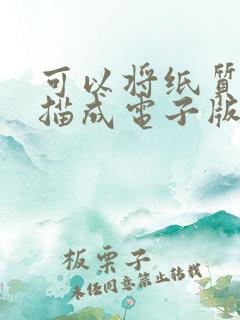 可以将纸质
描成电子版
板栗子
未经同意禁止转载